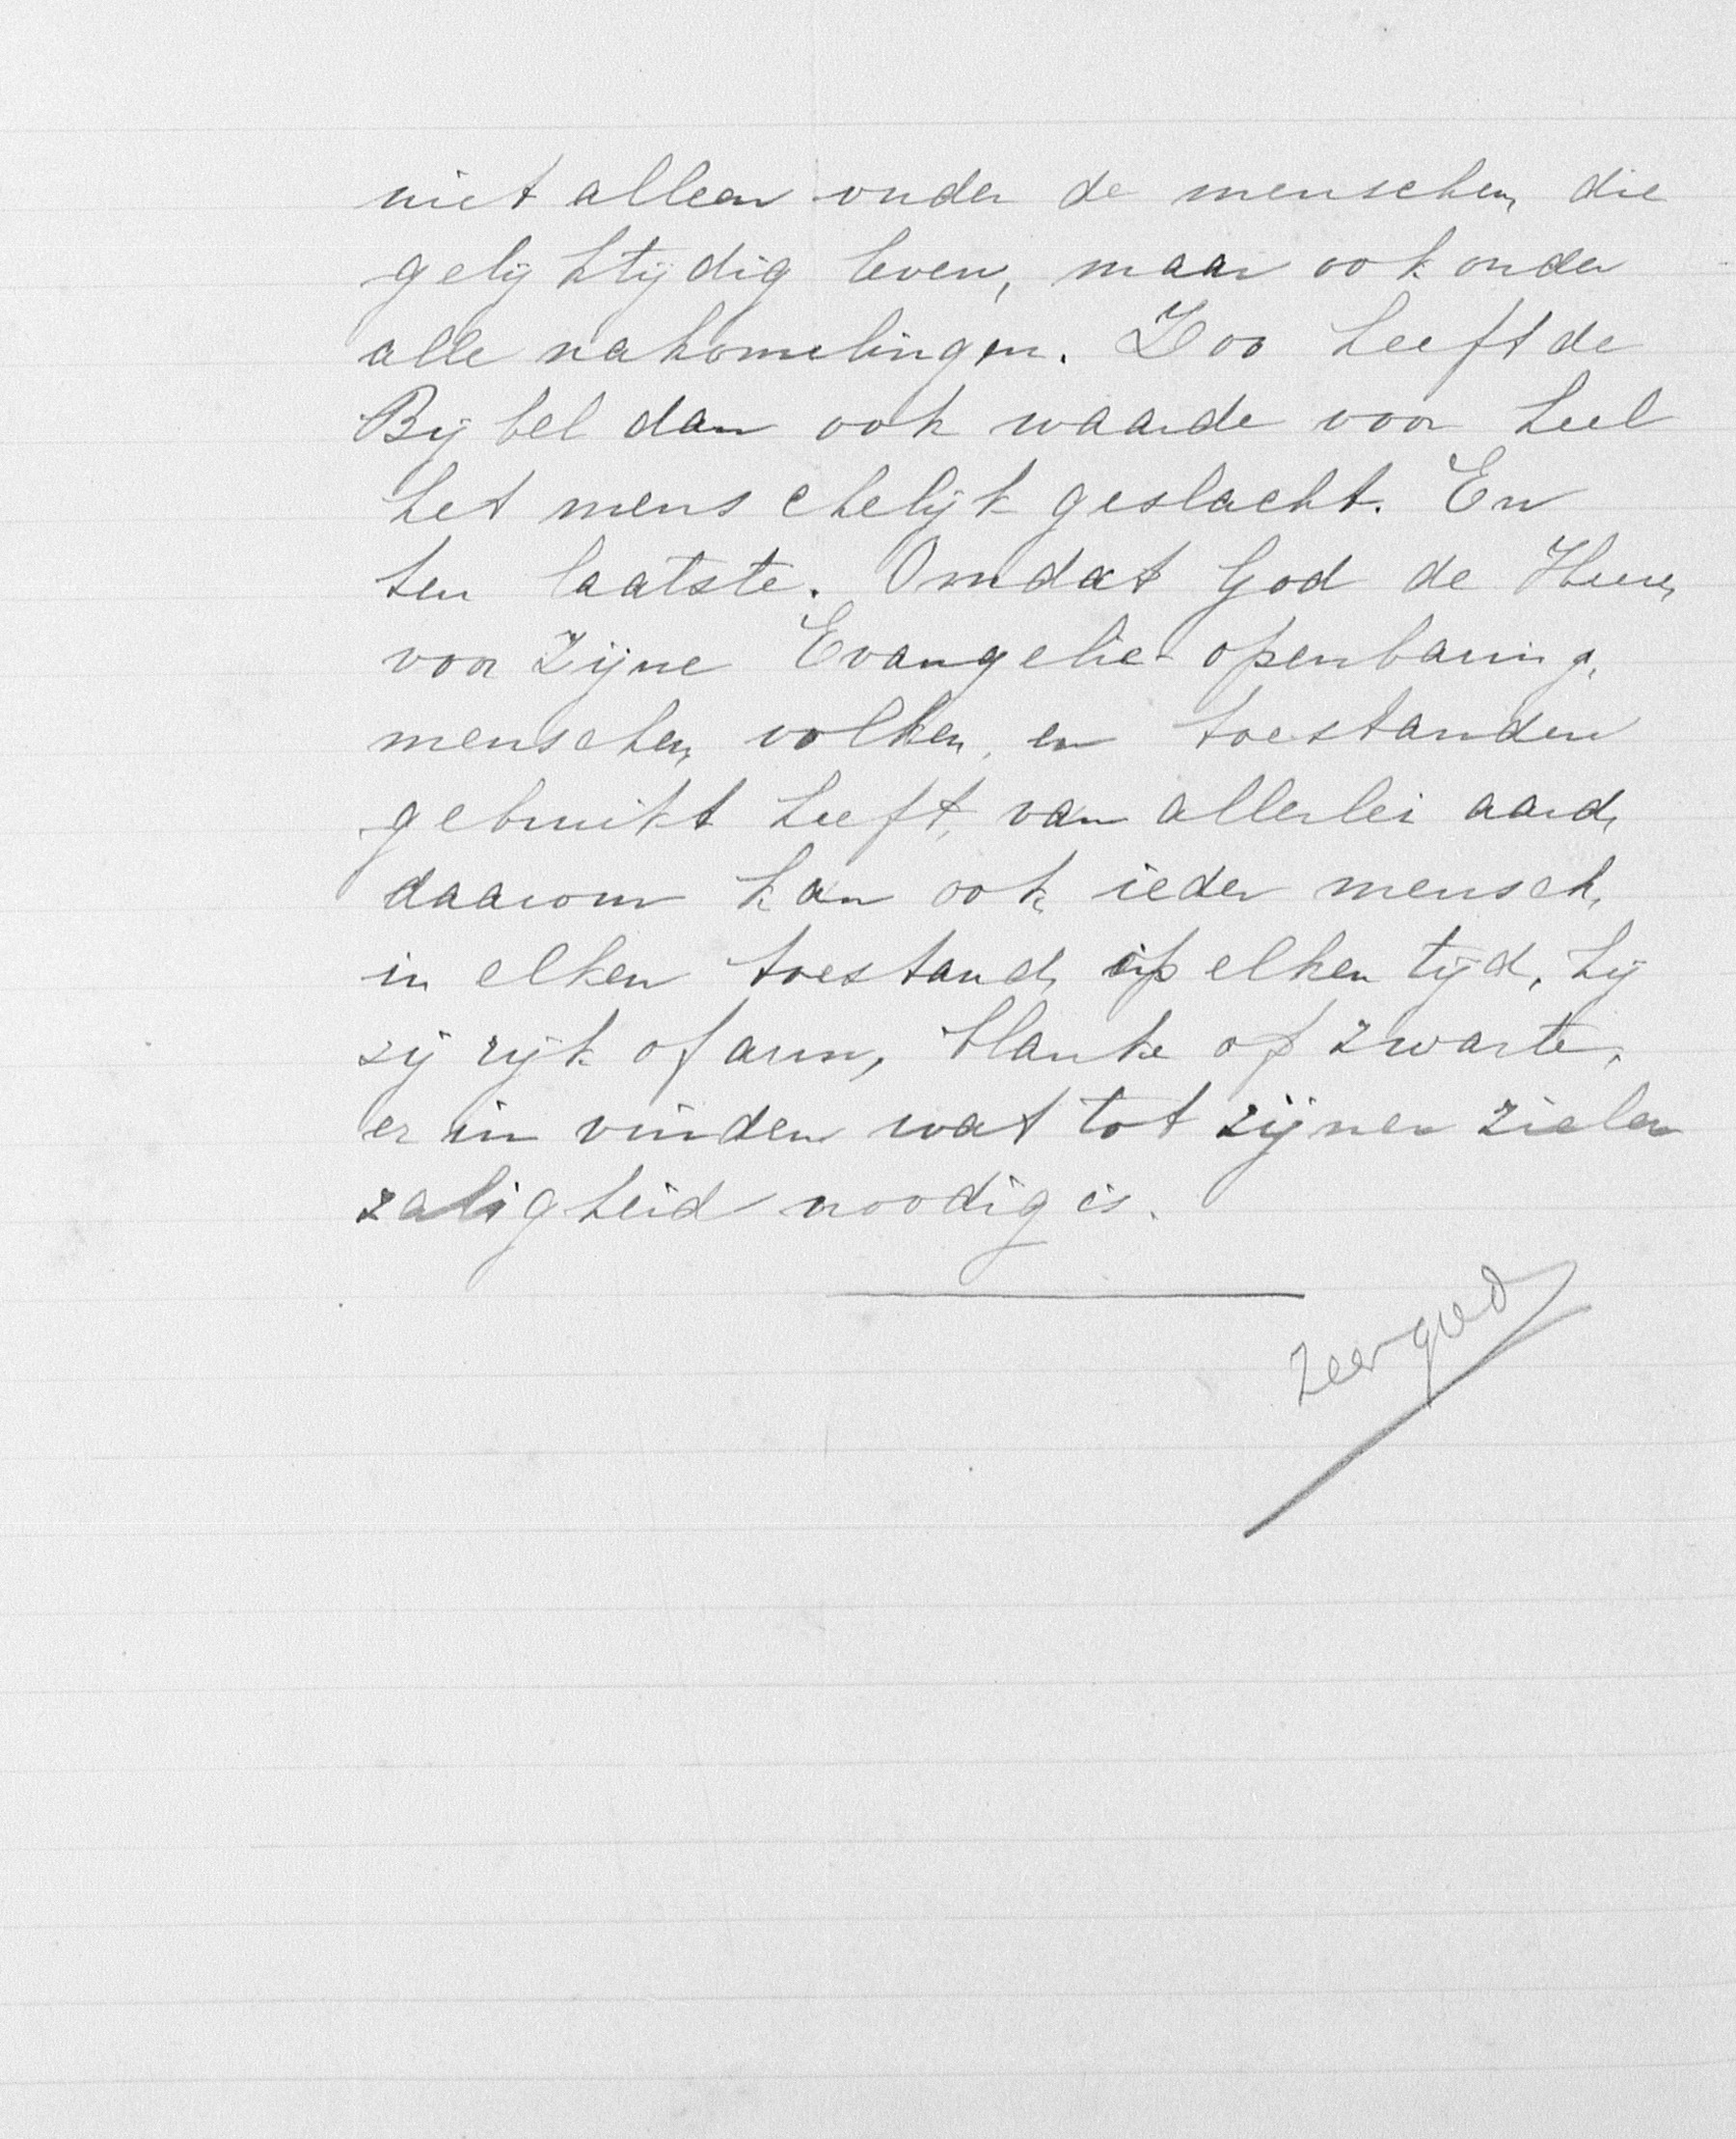 niet alleen onder de menschen, die
gelijktijdig leven, maar ook onder
alle nakomelingen. Zoo heeft de
Bijbel dan ook waarde voor heel
het menschelijk geslacht. En
ten laatste. Omdat God de Heere,
voor Zijne Evangelie-openbaring,
menschen, volken, en toestanden
gebruikt heeft, van allerlei aard,
daarom kan ook ieder mensch,
in elken toestand, op elken tijd, hij
zij rijk of arm, blanke of zwarte,
er in vinden wat tot zijner zielen
zaligheid noodig is.
Zeer goed